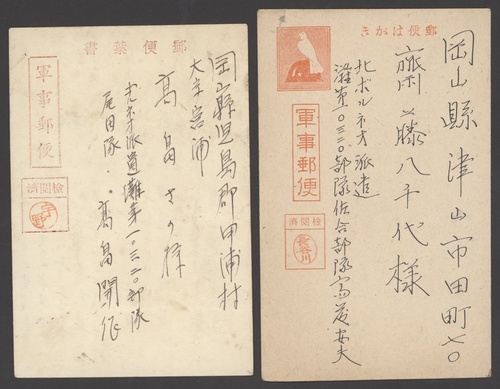 書葉便郵
軍事郵便
検閲済
岡山縣児島郡甲浦村
大字宮浦
高畠さか様
ボルネオ派遣灘第一〇三二〇部隊
尾田隊
高畠開作
きがは便郵
軍事郵便
検閲済
長谷川
岡山縣津山市田町七〇
齋藤八千代様
北ボルネオ派遣
灘第一〇三二〇部隊佐合部隊